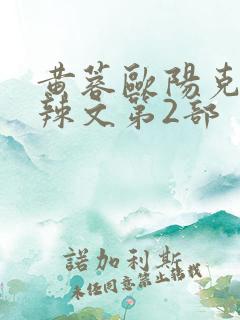 黃蓉歐陽克
辣文第2部
諾加利斯
未經同意禁止轉載